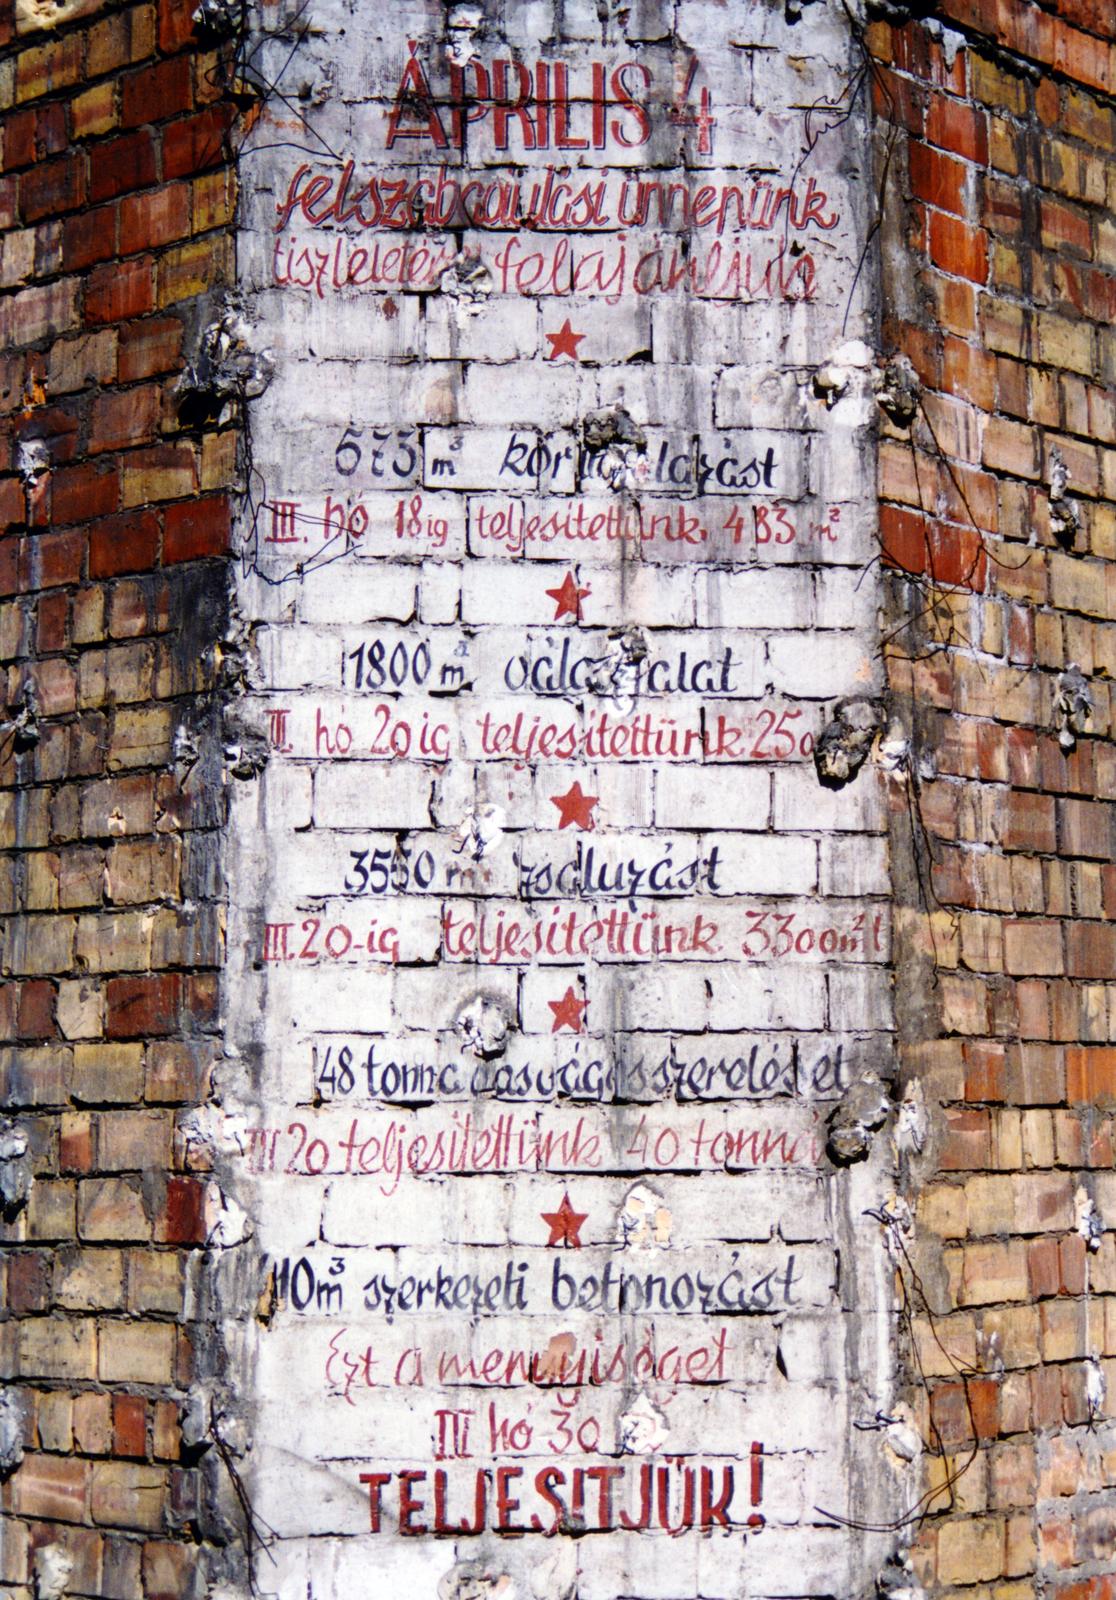 ÁPRILIS 4
felszabadulási ünnepünk
tiszteletére felajánljuk
573 m³
III. hó 18 ig teljesitettünk. 483 m²
1800 m²
II. hó 20 ig teljesitettünk 250
3550 m zsaluzást
III. 20-ig teljesitettünk 3300 m²t
48 tonna szerelését
III 20 teljesitettünk 40 tonna
110 m³ szerkezeti betonozást
Ezt a mennyiséget
III hó 30
TELJESITJÜK!